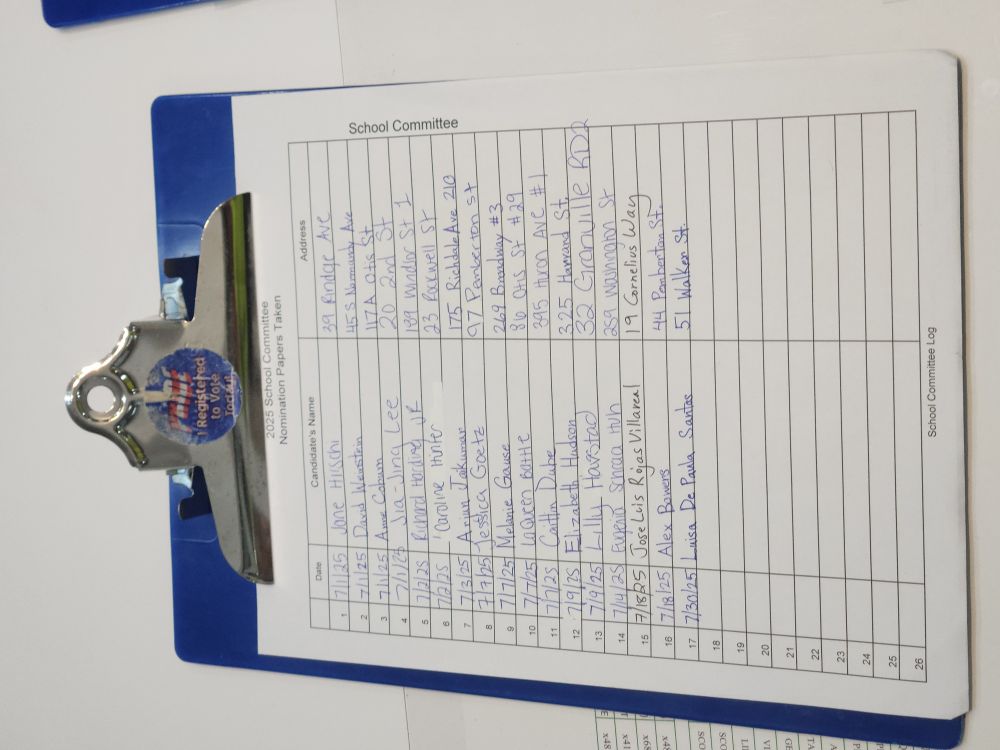 I Registered
to Vote
Today!
2025 School Committee
Nomination Papers Taken
School Committee
Date Candidate's Name Address
1 7/1/25 Jane Hirschi 39 Rindge Ave
2 7/1/25 David Weinstein 45 S Normandy Ave
3 7/1/25 Anne Coburn 117A Otis St
4 7/1/25 Jia-Jing Lee 20 2nd St
5 7/2/25 Richard Harding JR 199 Windsor St 1
6 7/2/25 Caroline Hunter 23 Rockwell St
7 7/3/25 Arjun Jaikumar 175 Richdale Ave 210
8 7/7/25 Jessica Goetz 97 Pemberton St
9 7/7/25 Melanie Gause 269 Broadway #3
10 7/7/25 LaQueen Battle 86 Otis St #29
11 7/7/25 Caitlin Dube 395 Huron Ave #1
12 7/9/25 Elizabeth Hudson 325 Harvard St.
13 7/9/25 Lilly Havstad 32 Granville RD 2
14 7/14/25 Huh 259 St
15 7/18/25 Jose Luis Rojas Villareal 19 Cornelius Way
16 7/18/25 Alex Bowers 44 Pemberton St.
17 7/30/25 Luisa De Paula Santos 51 Walker St.
18
19
20
21
22
23
24
25
26
School Committee Log